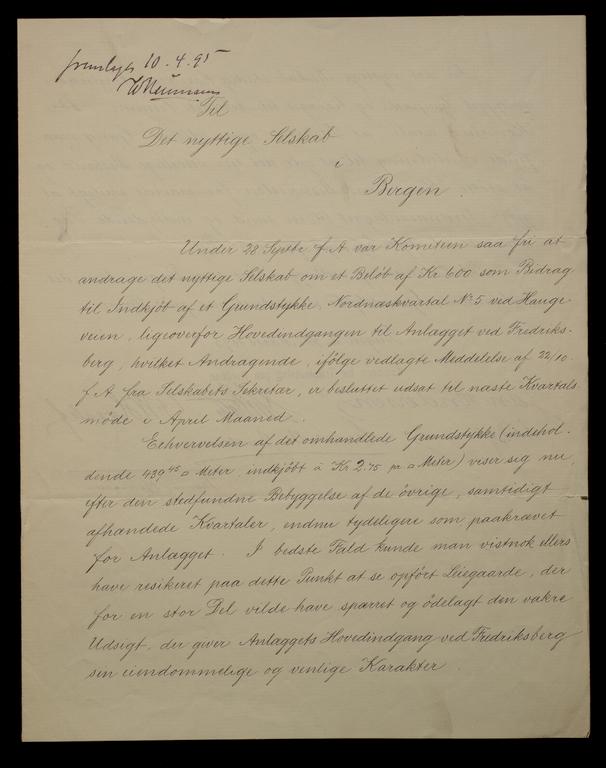 fremlagt 10-4-95
WNeumann
Til
Det nyttige Selskab
i
Bergen.
Under 28 Septbr f. A var Komiteen saa fri at
andrage det nyttige Selskab om et Beløb af Kr 600 som Bidrag
til Indkjøb af et Grundstykke, Nordnæskvartal No 5 ved Hauge-
veien, ligeoverfor Hovedindgangen til Anlægget ved Fredriks-
berg, hvilket Andragende, ifölge vedlagte Meddelelse af 22/10
f. A fra Selskabets Sekretær, er besluttet udsat til næste Kvartals
möde i April Maaned.
Erhvervelsen af det omhandlede Grundstykke (indehol-
dende 439,45 □ Meter, indkjöbt à Kr 2.75 pr □ Meter) viser sig nu,
efter den stedfundne Bebyggelse af de övrige, samtidigt
afhændede Kvartaler, endnu tydeligere som paakrævet
for Anlægget. I bedste Fald kunde man vistnok ellers
have resikeret paa dette Punkt at se opfört Leiegaarde, der
for en stor Del vilde have spærret og ödelagt den vakre
Udsigt, der giver Anlæggets Hovedindgang ved Fredriksberg
sin eiendommelige og venlige Karakter.